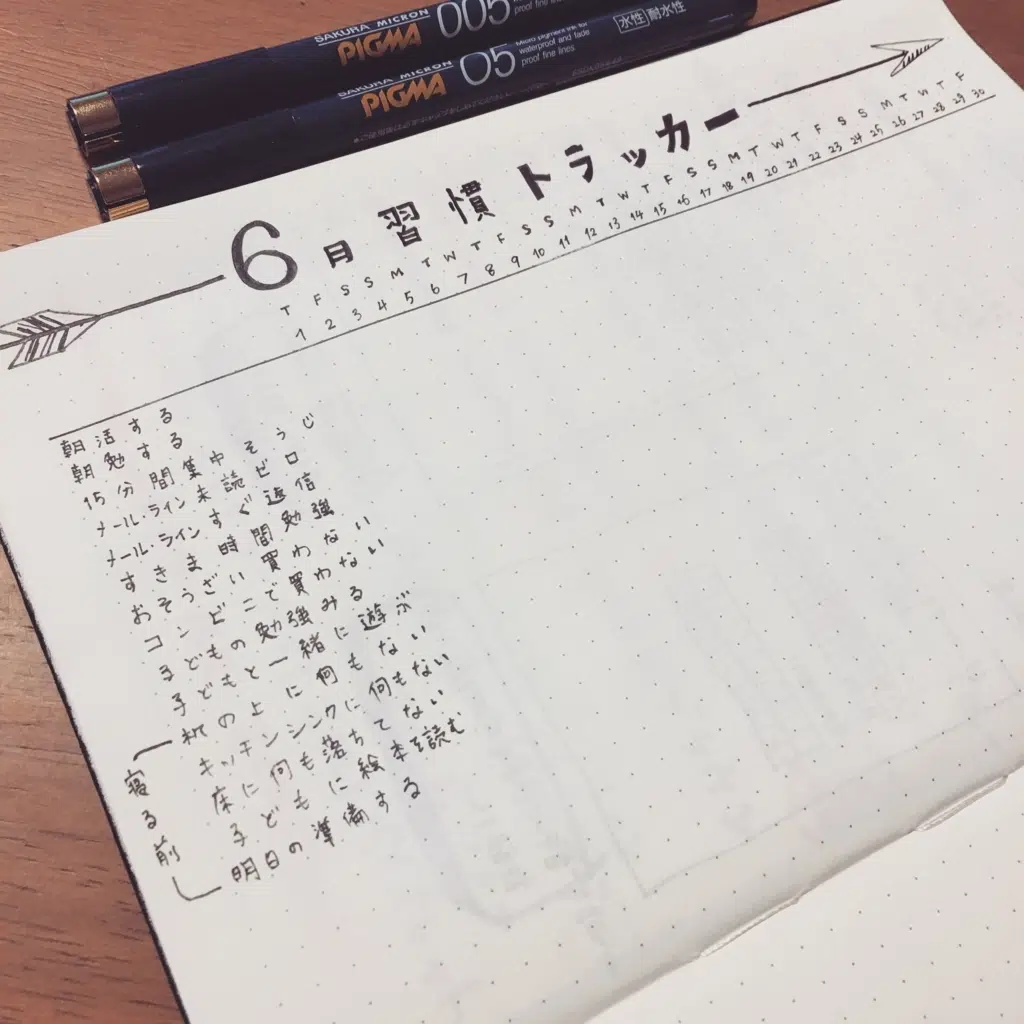 SAKURA MICRON
PIGMA 005
proof fine lines
水性 耐水性
SAKURA MICRON
PIGMA 05
Micro pigment ink for
waterproof and fade
proof fine lines
6月 習慣トラッカー
T F S S M T W T F S S M T W T F S S M T W T F S S M T W T F
1 2 3 4 5 6 7 8 9 10 11 12 13 14 15 16 17 18 19 20 21 22 23 24 25 26 27 28 29 30
朝活する
朝勉する
15分間集中そうじ
メール・ライン未読ゼロ
メール・ラインすぐ返信
すきま時間勉強
おそうざい買わない
コンビニで買わない
子どもの勉強みる
子どもと一緒に遊ぶ
寝る前
机の上に何もない
キッチンシンクに何もない
床に何も落ちてない
子どもに絵本を読む
明日の準備する